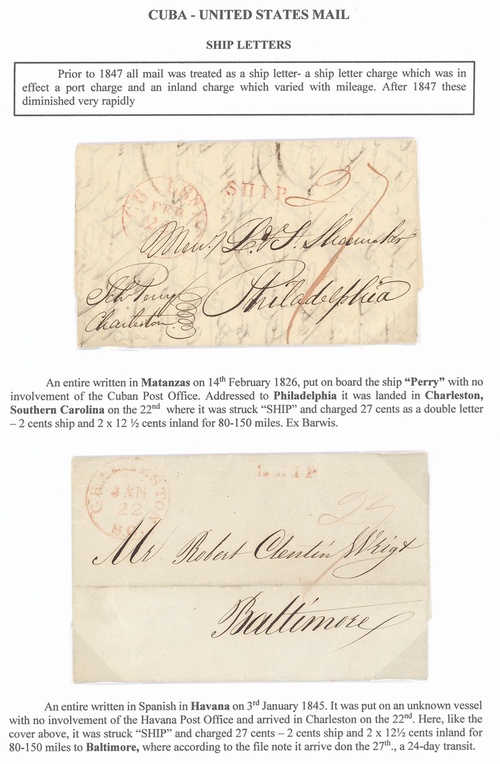 CUBA - UNITED STATES MAIL
SHIP LETTERS
Prior to 1847 all mail was treated as a ship letter- a ship letter charge which was in
effect a port charge and an inland charge which varied with mileage. After 1847 these
diminished very rapidly
SHIP 27
FEB
Philadelphia
Sch Perry
Charleston
An entire written in Matanzas on 14th February 1826, put on board the ship “Perry” with no
involvement of the Cuban Post Office. Addressed to Philadelphia it was landed in Charleston,
Southern Carolina on the 22nd where it was struck “SHIP” and charged 27 cents as a double letter
– 2 cents ship and 2 x 12 ½ cents inland for 80-150 miles. Ex Barwis.
SHIP
CHARLESTON
JAN
22
S.C.
27
Mr Robert Clentin Wright
Baltimore
An entire written in Spanish in Havana on 3rd January 1845. It was put on an unknown vessel
with no involvement of the Havana Post Office and arrived in Charleston on the 22nd. Here, like the
cover above, it was struck “SHIP” and charged 27 cents – 2 cents ship and 2 x 12½ cents inland for
80-150 miles to Baltimore, where according to the file note it arrive don the 27th., a 24-day transit.